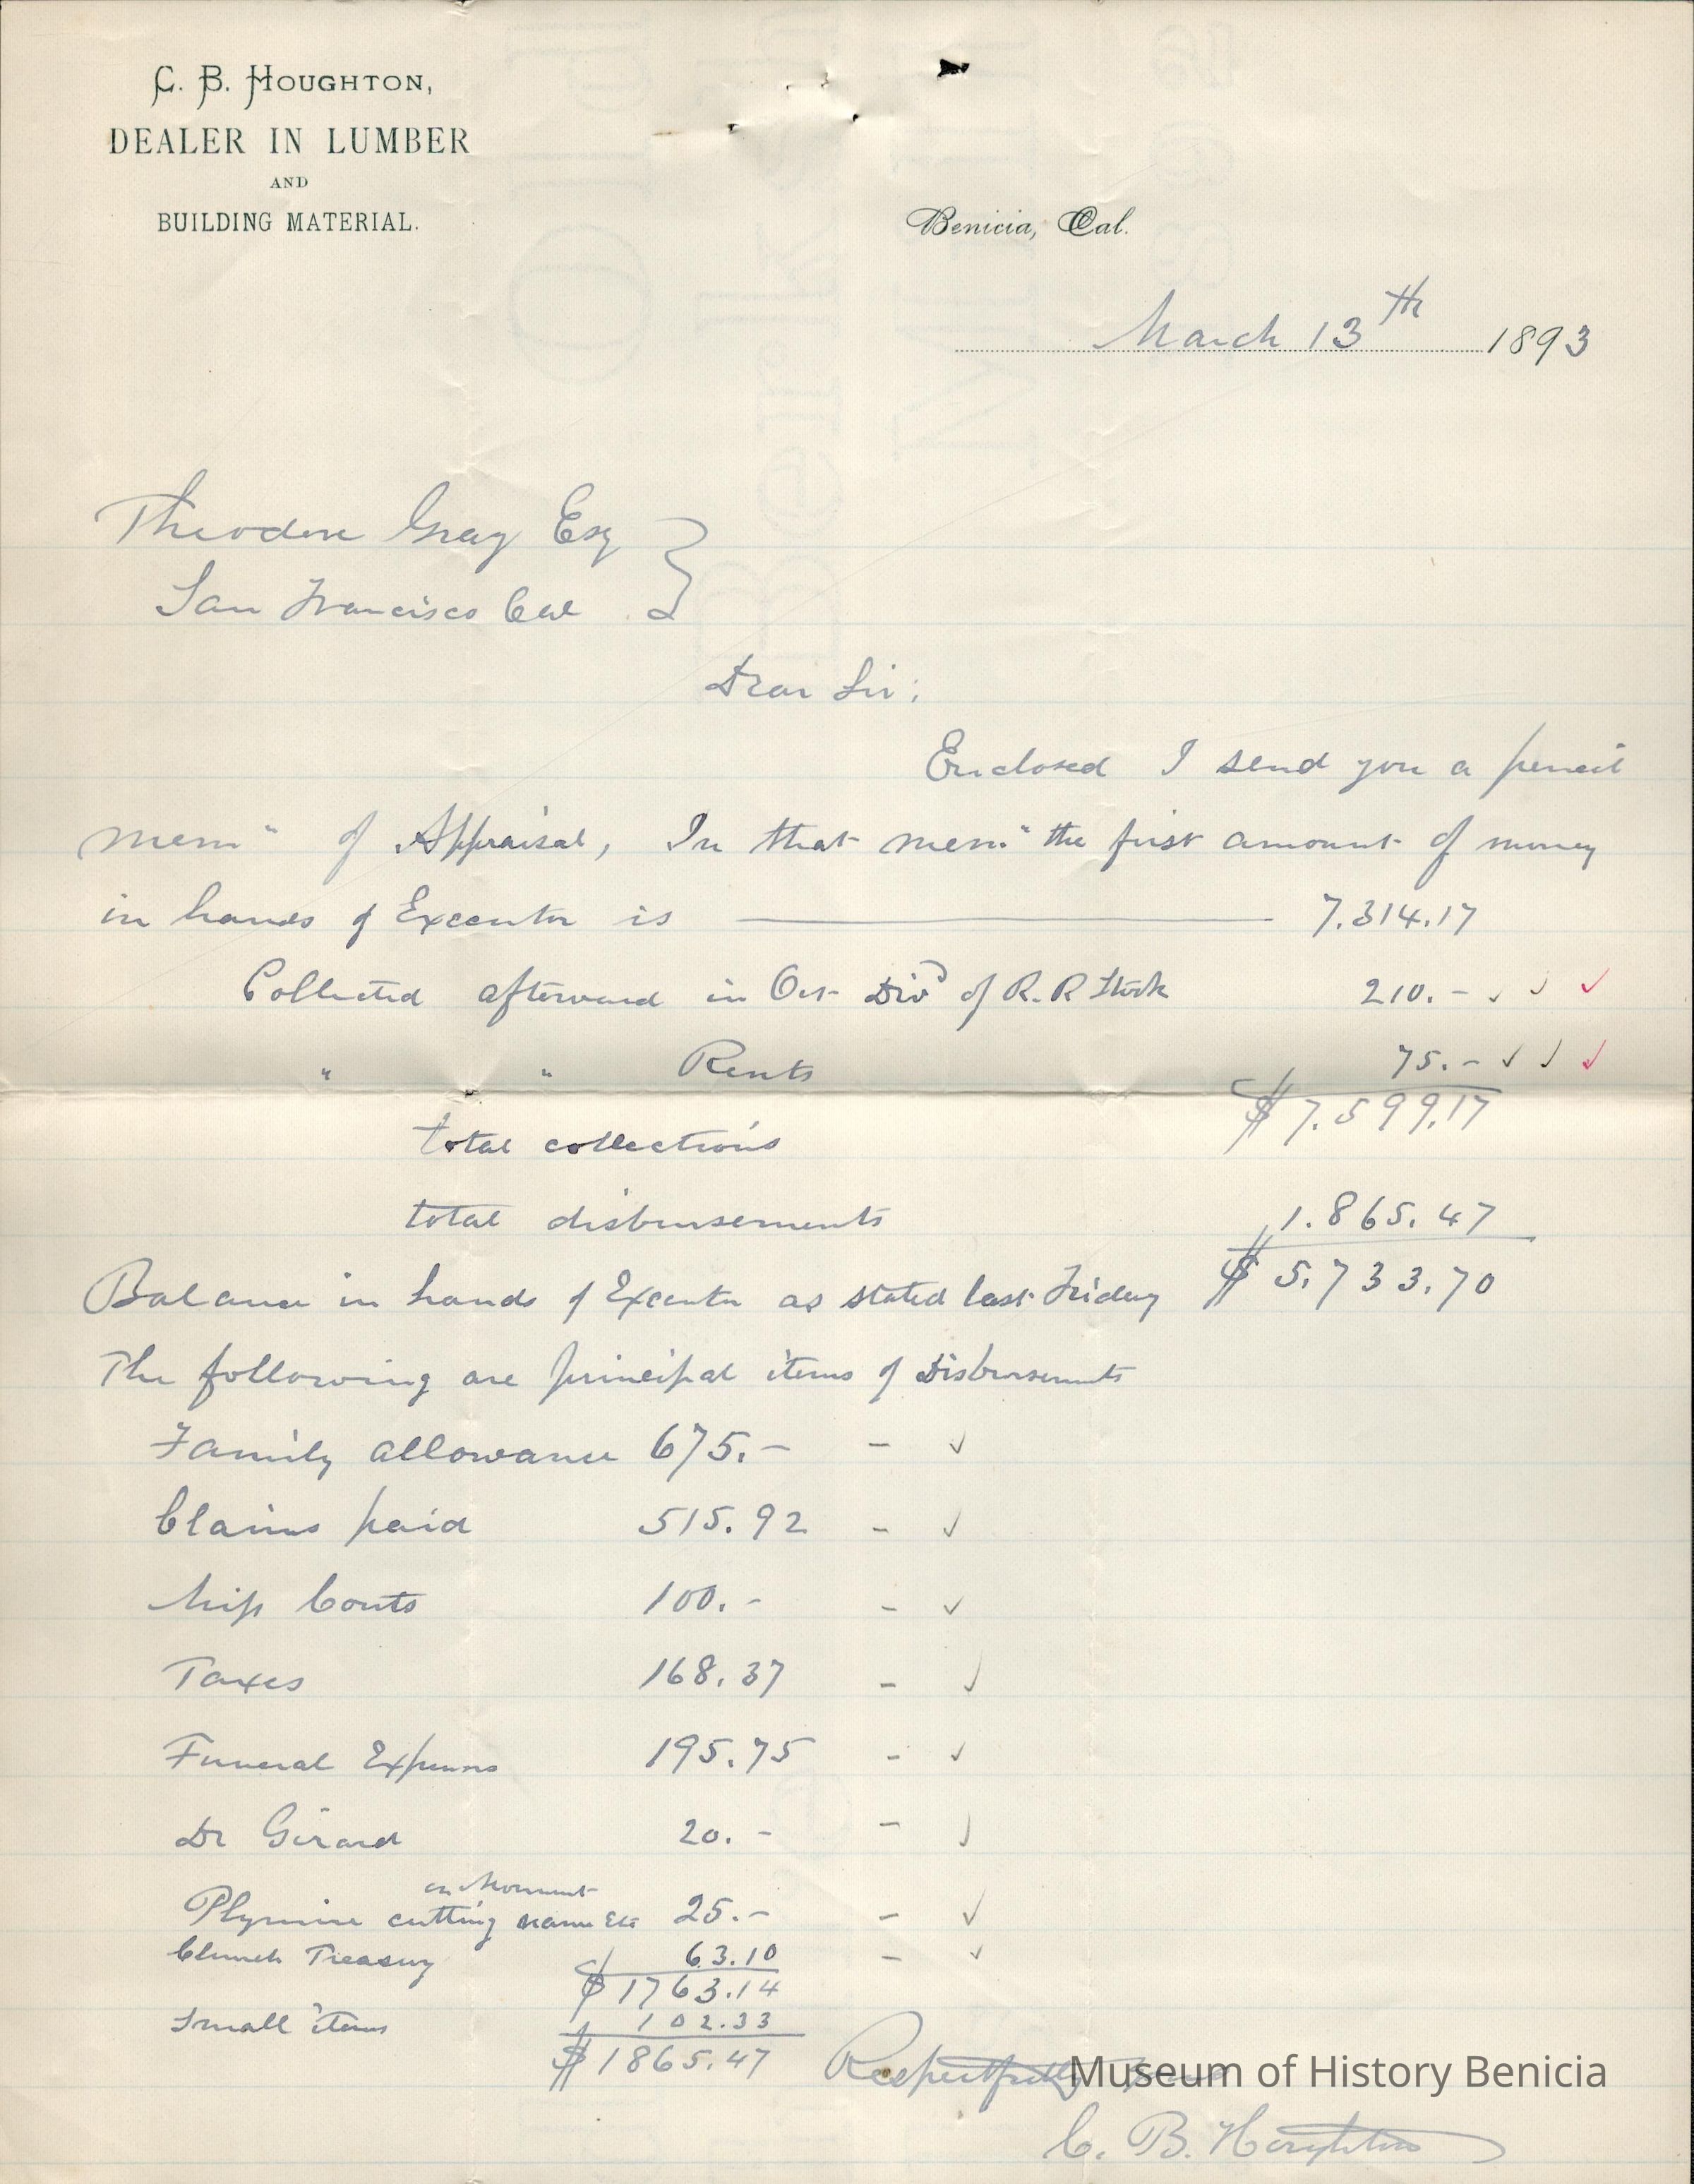 C. B. HOUGHTON,
DEALER IN LUMBER
AND
BUILDING MATERIAL.
Benicia, Cal.
March 13th 1893
Theodore Gray Esq
San Francisco Cal
Dear Sir:
Enclosed I send you a pencil
mem" of Appraisal, In that mem" the first amount of money
in hands of Executor is 7.314.17
Collected afterward in Oct Divd of R.R Stock 210.-
" " Rents 75.-
total collections $7.599.17
total disbursements 1.865.47
Balance in hands of Executor as stated last Friday $5.733.70
The following are principal items of Disbursements
Family allowance 675.- -
Claims paid 515.92 -
100.- -
Taxes 168.37 -
Funeral Expenses 195.75 -
Dr Girard 20.- -
on Monument
Plymire cutting name Etc 25.- -
Church Treasury 63.10 -
$1763.14
Small items 102.33
$1865.47
Respectfully
C. B. Houghton
Museum of History Benicia